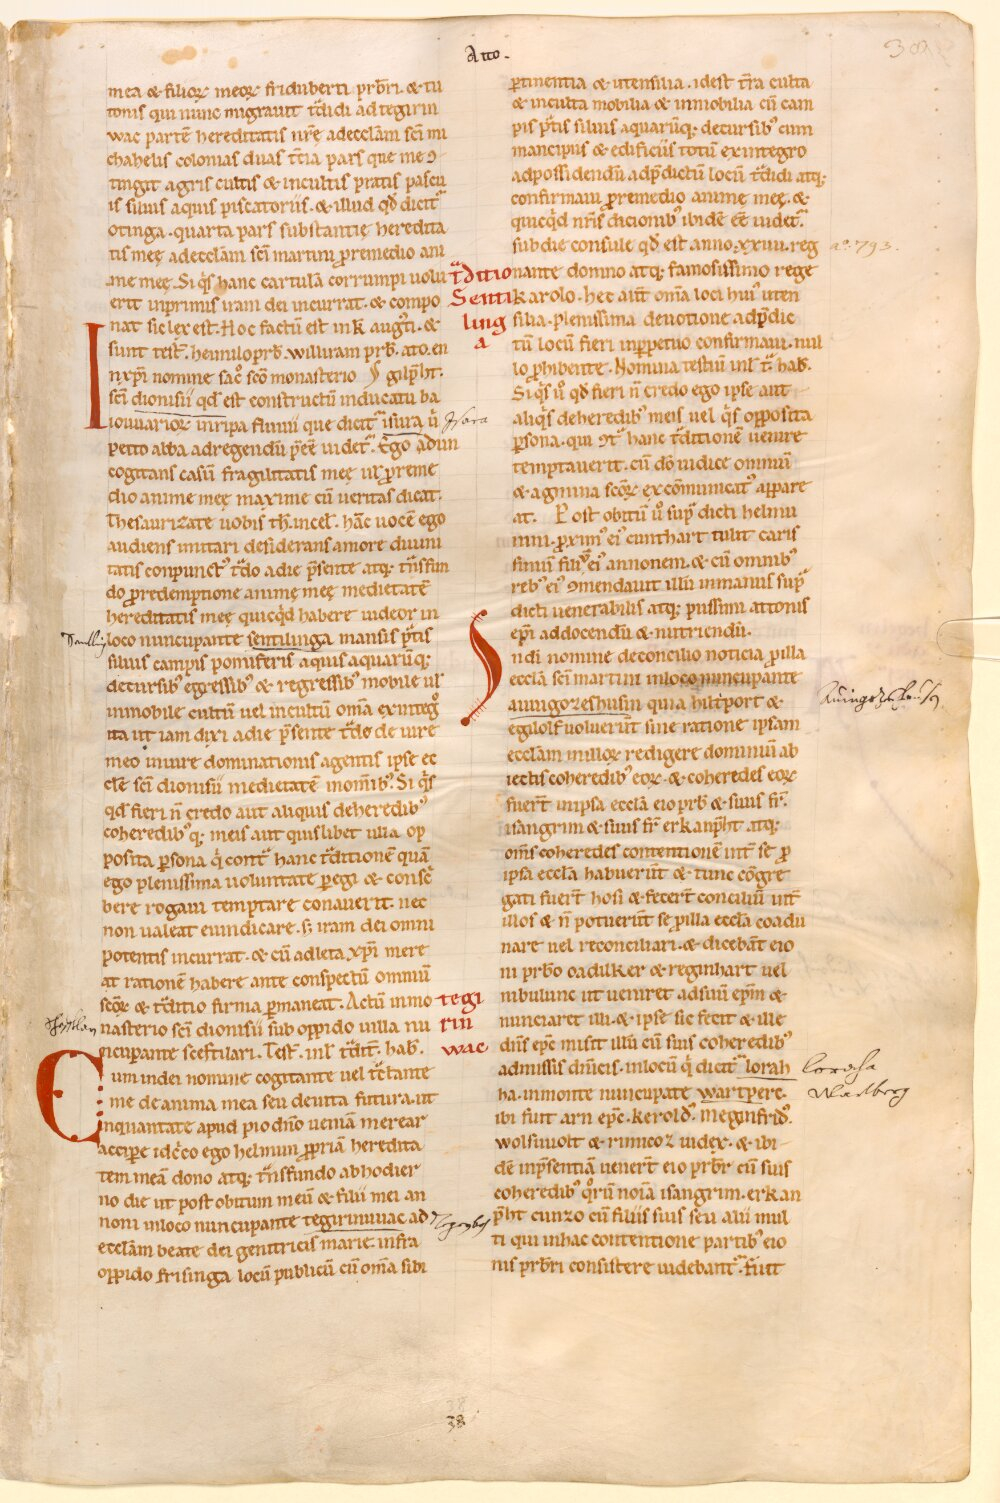 Atto.
mea & filioꝝ meoꝝ friduberti pr̄bri. & tu
tonis qui nunc migrauit t̄didi ad tegirin
wac partē hereditatis nr̄ę adecclām sc̄i mi
chahelis colonias duas t̄cia pars que me ꝯ
tingit agris cultis & incultis pratis pascu
is siluis aquis piscatoriis. & illud qd̄ dicit᷑
otinga. quarta pars substantię heredita
tis meę adecclām sc̄i martini ꝓremedio ani
me meę. Si q̄s hanc cartulā corrumpi uolu
erit inprimis iram dei incurrat. & compo
nat sic lex est. Hoc factū est in k̄ auḡti. &
sunt test̄. heimilo prb̄. williram prb̄. ato. en
In xp̄i nomine sac̄o sc̄o monasterio gilp̄ht.
sc̄i dionisii qd̄ est constructū inducatu ba
iouuarioꝝ inripa fluuii que dicit᷑ isura ū
petto alba adregendū p̄eē uidet᷑. Ego adun
cogitans casū fragilitatis meę ul̄ ꝓreme
dio anime meę maxime cū ueritas dicat.
Thesaurizate uobis th̄. incel̄. hāc uocē ego
audiens imitari desiderans amore diuini
tatis conpunct᷒ t̄do adie p̄sente atq; t̄nsfun
do ꝓredemptione animę meę medietatē
hereditatis meę quicq̄d habere uideor in
loco nuncupante sentilinga mansis p̄tis
siluis campis pomiferis aquis aquarūq;
decursib᷒ egressib᷒ & regressib᷒ mobile ul̄
inmobile cultū uel incultū om̄ia exinteg̊
ita ut iam dixi adie p̄sente t̄do de iure
meo iniure dominationis agentis ipse ec
clē sc̄i dionisii medietatē inom̄ib᷒. Si q̄s
qd̄ fieri n̄ credo aut aliquis deheredib᷒
coheredib᷒q; meis aut quislibet ulla op
posita ꝑsona q̄ cont̄ hanc t̄ditionē quā
ego plenissima uoluntate ꝑegi & consc̄
bere rogaui temptare conauerit. nec
non ualeat euindicare. s; iram dei omni
potentis incurrat. & cū adleta xp̄i mere
at rationē habere ante conspectū omniū
sc̄oꝝ & t̄ditio firma ꝑmaneat. Actū inmo
nasterio sc̄i dionisii sub oppido uilla nu
ncupante sceftilari. Test̄. inl̄ t̄dit̄. hab̄.
Cum indei nomine cogitante uel t̄ctante
me de anima mea seu de uita futura. ut
inquantate apud pio dn̄o ueniā merear
accipe idc̄co ego helmuni ꝓpriā heredita
tem meā dono atq; t̄nsfundo ab hodier
no die ut post obitum meū & filii mei an
noni inloco nuncupante tegirinuuac ad
ecclām beate dei genitricis marie. infra
oppido frisinga locū publicū cū om̄ia sibi
t̄ditio
Senti
ling
a
tegi
rin
wac
Isara
ꝑtinentia & utensilia. idest t̄ra culta
& inculta mobilia & inmobilia cū cam
pis p̄tis siluis aquarūq; decursib᷒ cum
mancipiis & edificiis totū exintegro
adpossidendū adp̄dictū locū t̄didi atq;
confirmaui ꝓremedio animę meę. &
quicq̄d nr̄is dicionib᷒ ibidē eē uidet᷑.
sub die consule qd̄ est anno. xxuii. reg
nante domno atq; famosissimo rege
karolo. hec aūt om̄ia loci hui᷒ uten
silia. plenissima deuotione adp̄dic
tū locū fieri inꝑpetuo confirmaui. nul
lo ꝓhibente. Nomina testiū inl̄ t̄ hab̄.
Si q̄s ū qd̄ fieri n̄ credo ego ipse aut
aliq̄s deheredib᷒ meis uel q̄s opposita
ꝑsona. qui ꝯt᷑ hanc t̄ditionē uenire
temptauerit. cū dō iudice omniū
& agmina sc̄oꝝ excōmunicat᷒ appare
at. Post obitū ū sup̄ dicti helmu
nini. ꝓxim᷒ ei᷒ cunthart tulit caris
simū filiū ei᷒ annonem. & cū omnib᷒
reb᷒ ei᷒ ꝯmendauit illū inmanus sup̄
dicti uenerabilis atq; piissimi attonis
ep̄i addocendū & nutriendū.
In dī nomine deconcilio noticia ꝓ illa
ecclā sc̄i martini inloco nuncupante
auuigozeshusin quia hilt̄port &
egilolf uoluerūt sine ratione ipsam
ecclām inilloꝝ redigere dominiū ab
iectis coheredib᷒ eoꝝ. & coheredes eoꝝ
fuer̄t inipsa ecclā eio prb̄ & suus fr̄.
isangrim & suus fr̄ erkanp̄ht. atq;
om̄s coheredes contentionē int᷑ se ꝓ
ipsa ecclā habuerūt & tunc cōgre
gati fuer̄t hosi & fecer̄t conciliū int᷑
illos & n̄ potuerūt se ꝓ illa ecclā coadu
nare uel reconciliari. & dicebāt eio
ni prb̄o oadilker & reginhart uel
nibulunc ut ueniret adsuū ep̄m &
nunciaret illi. & ipse sic fecit & ille
dn̄s ep̄c misit illū cū suis coheredib᷒
admissis dn̄icis. inlocū q̄ dicit᷑ lorah
ha. inmonte nuncupate wartpere.
ibi fuit arn ep̄c. kerold᷒. meginfrid᷒.
wolfuuolt & rimicoz iudex. & ibi
dē inp̄sentiā uener̄t eio prb̄r cū suis
coheredib᷒ q̊rū noīa isangrim. erkan
p̄ht cunzo cū filiis suis seu alii mul
ti qui inhac contentione partib᷒ eio
nis prb̄ri consistere uidebant᷑. Fuit
aº. 793.
Loracha
Wartberg
38
38